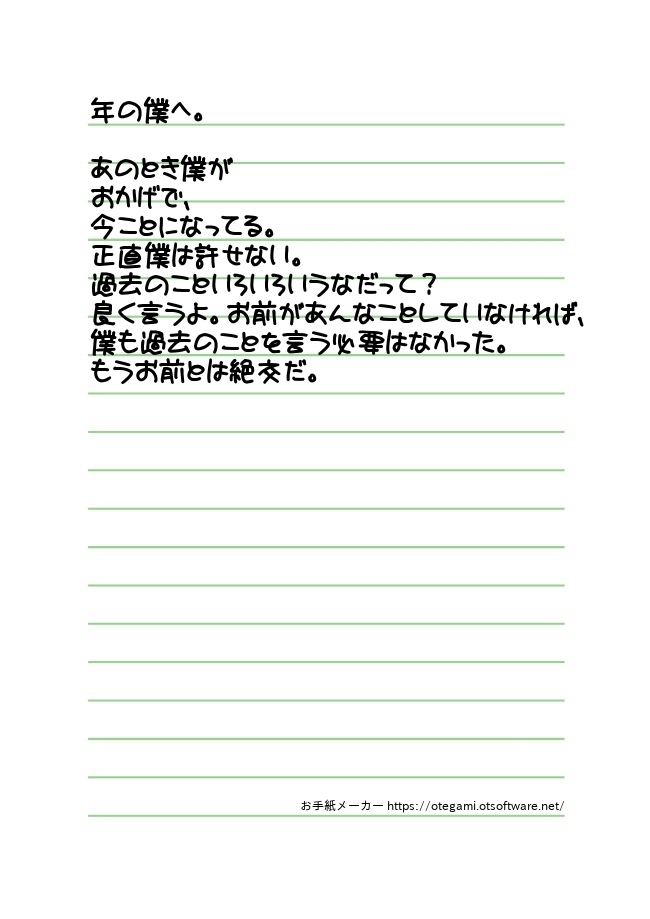 年の僕へ。
あのとき僕が
おかげで、
今ことになってる。
正直僕は許せない。
過去のこといろいろいうなだって？
良く言うよ。お前があんなことしていなければ、
僕も過去のことを言う必要はなかった。
もうお前とは絶交だ。
お手紙メーカー https://otegami.otsoftware.net/